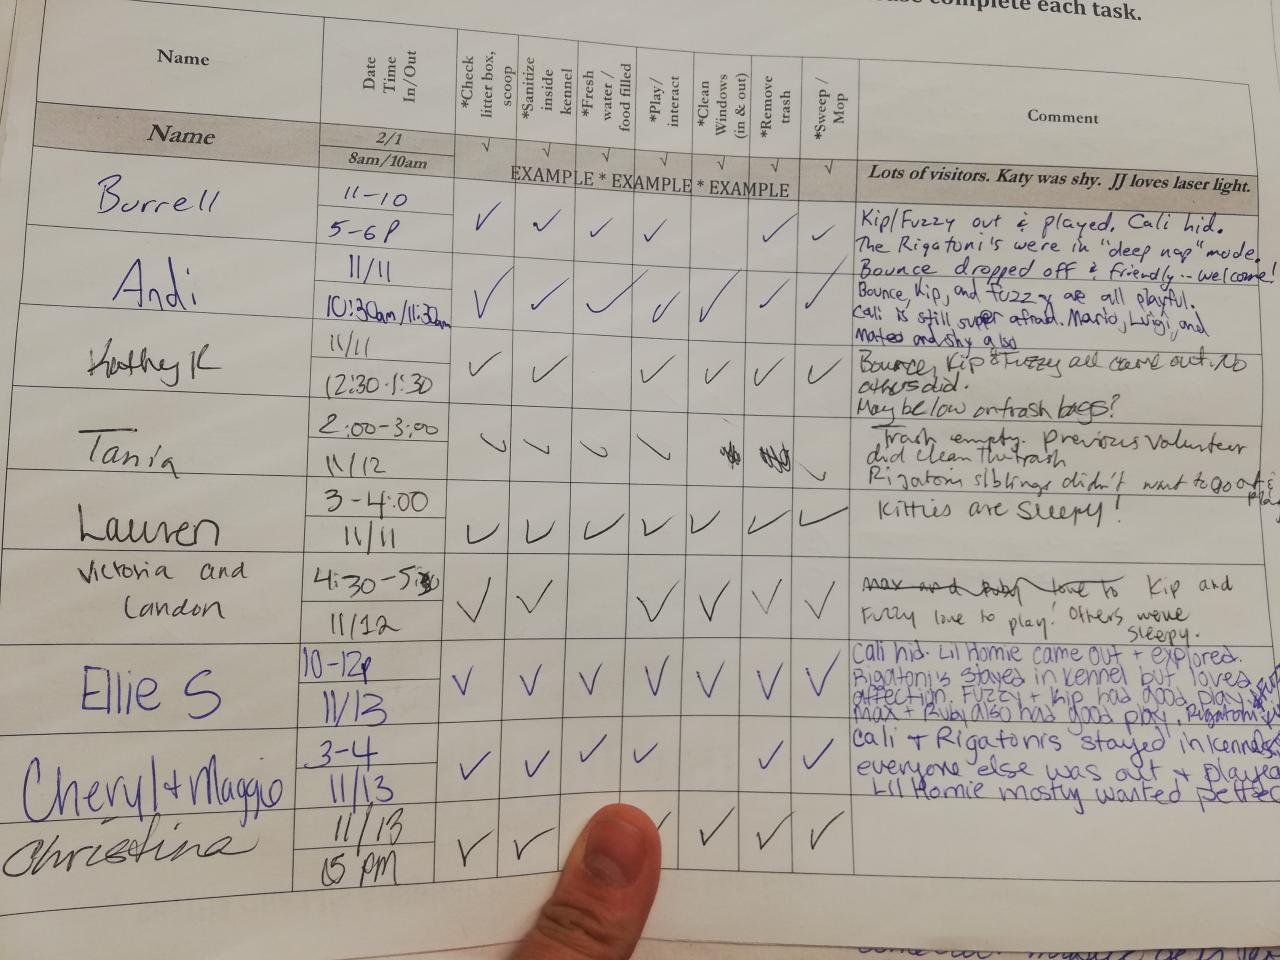 complete each task.
Name
Date
Time
In/Out
*Check
litter box,
scoop
*Sanitize
inside
kennel
*Fresh
water /
food filled
*Play/
interact
*Clean
Windows
(in & out)
*Remove
trash
*Sweep /
Mop
Comment
Name
2/1
8am/10am
√ √ √ √ √ √ √
EXAMPLE * EXAMPLE * EXAMPLE
Lots of visitors. Katy was shy. JJ loves laser light.
Burrell
11-10
5-6P
✓ ✓ ✓ ✓ ✓ ✓
Kip/Fuzzy out & played. Cali hid.
The Rigatoni's were in "deep nap" mode.
Bounce dropped off & friendly -- welcome!
Andi
11/11
10:30am/11:30am
✓ ✓ ✓ ✓ ✓ ✓ ✓
Bounce, Kip, and Fuzzy are all playful.
Cali is still super afraid. Mario, Luigi, and
and shy also
Kathey K
11/11
12:30-1:30
✓ ✓ ✓ ✓ ✓ ✓
Bounce, Kip & Fuzzy all came out. No
others did.
May be low on trash bags?
Tania
2:00-3:00
11/12
✓ ✓ ✓ ✓ ✓
Trash empty. Previous Volunteer
did clean the trash
Rigatoni siblings didn't want to go out &
play
Lauren
3-4:00
11/11
✓ ✓ ✓ ✓ ✓ ✓ ✓
Kitties are sleepy!
Victoria and
Landon
4:30-5:30
11/12
✓ ✓ ✓ ✓ ✓ ✓
Max and Ruby love to Kip and
Fuzzy love to play! Others were
sleepy.
Ellie S
10-12p
11/13
✓ ✓ ✓ ✓ ✓ ✓ ✓
Cali hid. Lil Homie came out + explored.
Rigatonis stayed in kennel but loved
affection. Fuzzy + Kip had good play,
Max + Ruby also had good play. Rigatoni
Cheryl + Maggie
3-4
11/13
✓ ✓ ✓ ✓ ✓ ✓
Cali + Rigatonis stayed in kennels
everyone else was out + played
Lil Homie mostly wanted petted
Christina
11/13
5 PM
✓ ✓ ✓ ✓ ✓ ✓